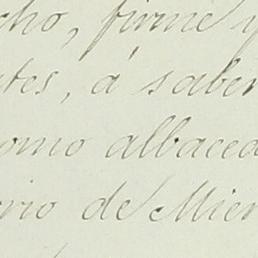 cho, firme y
ntes, á saber
como albacea
orio de Mier